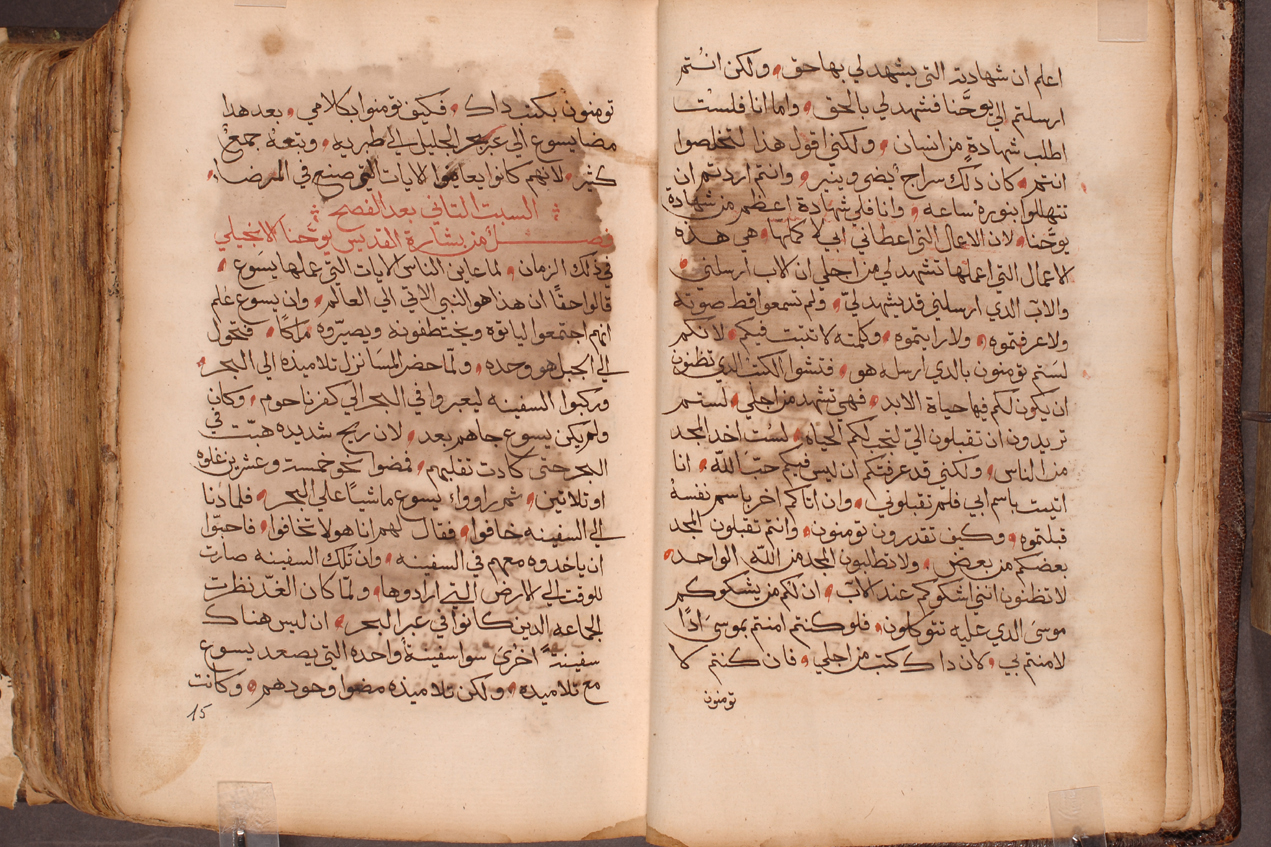 اعلم ان شهادته التي يشهد لي بها حق، ولكن انتم
ارسلتم الي يوحَّنا فشهد لي بالحق، واما انا فلست
اطلب شهادةٍ من انسان، ولكني اقول هذا لتخلصوا
انتم، كان دلك سراج يضي وينير، وانتم اردتم ان
تتهللوا بنوره ساعه، وانا فلي شهادة اعظم من شهادة
يوحَّنا، لان الاعمال التي اعطاني ابي لاكملها، هي هذه
الاعمال التي اعملها تشهد لي من اجلي ان الاب ارسلني،
والاب الدي ارسلني قد يشهد لي، ولم تسمعوا قط صوته
ولا عرفتموه، ولا رايتموه، وكلمته لا تتبت فيكم، لانكم
لستم تومنون بالدي ارسله هو، فتشوا الكتب الدي تظنون
ان يكون لكم فيها حياة الابد، فهي تشهد من اجلي، لستم
تريدون ان تقبلون اليّ لتجب لكم الحياه، لست اخد المجد
من الناس، ولكني قد عرفتكم ان ليس فيكم حب الله، انا
اتيت باسم ابي فلم تقبلوني، وان اتاكم اخر باسم نفسه
قبلتموه، وكيف تقدرون تومنون، وانتم تقبلون المجد
بعضكم من بعض، ولا تطلبون المجد من الله الواحد،
لا تظنون انني اشكوكم عند الاب، ان لكم من يشكوكم
موسى الدي عليه تتوكلون، فلو كنتم امنتم بموسى ادًا
لامنتم بي، لان داك كتب من اجلي، فان كنتم لا
تومنون
تومنون بكتب داك، فكيف تومنوا بكلامي، بعد هدا
مضا يسوع الى عبر بحر الجليل الي طبريه، وتبعه جمع
كثير، لانهم كانوا يعاينوا الايات التي صنع في المرضا،
السبت التاني بعد الفصح
فصل من بشارة القديس يوحنا الانجيلي
في دلك الزمان، لما عاين الناس الايات التي عملها يسوع،
قالوا حقًا ان هدا هو النبي الاتي الي العالم، وان يسوع علم
انهم اجتمعوا لياتوه ويختطفونه ويصيّروه ملكًا، فتحول
الي الجبل هو وحده، ولما حضر المسا نزل تلاميده الي البحر،
وركبوا السفينه ليعبروا في البحر الي كفرناحوم، وكان
ولم يكن يسوع جاهم بعد، لان ريح شديده هبّت في
البحر حتي كادت تقلبهم، فمضوا نحو خمست وعشرين غلوه
او تلاتين، تم راووا يسوع ماشيًا علي البحر، فلما دنا
الي السفينه خافوا، فقال لهم انا هو لا تخافوا، فاحبوا
ان ياخدوه معهم في السفينه، وان تلك السفينه صارت
للوقت الي الارض التي ارادوها، ولما كان الغد نظرت
الجماعه الدين كانوا في عبر البحر، ان ليس هناك
سفينة اخرى سوا سفينة واحده التي يصعد يسوع
مع تلاميده، ولكن تلاميذه مضوا وحودهم، وكانت
15